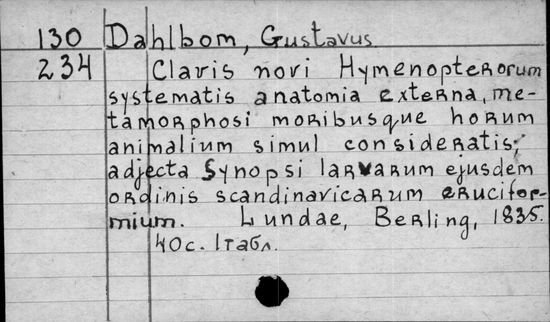 130 Dahlbom, Gustavus
234 Clavis novi Hymenopterorum
systematis anatomia externa, me-
tamorphosi moribusque horum
animalium simul consideratis,
adjecta Synopsi larvarum ejusdem
ordinis scandinavicarum erucifor-
mium. Lundae, Berling, 1835.
40c. 1 табл.